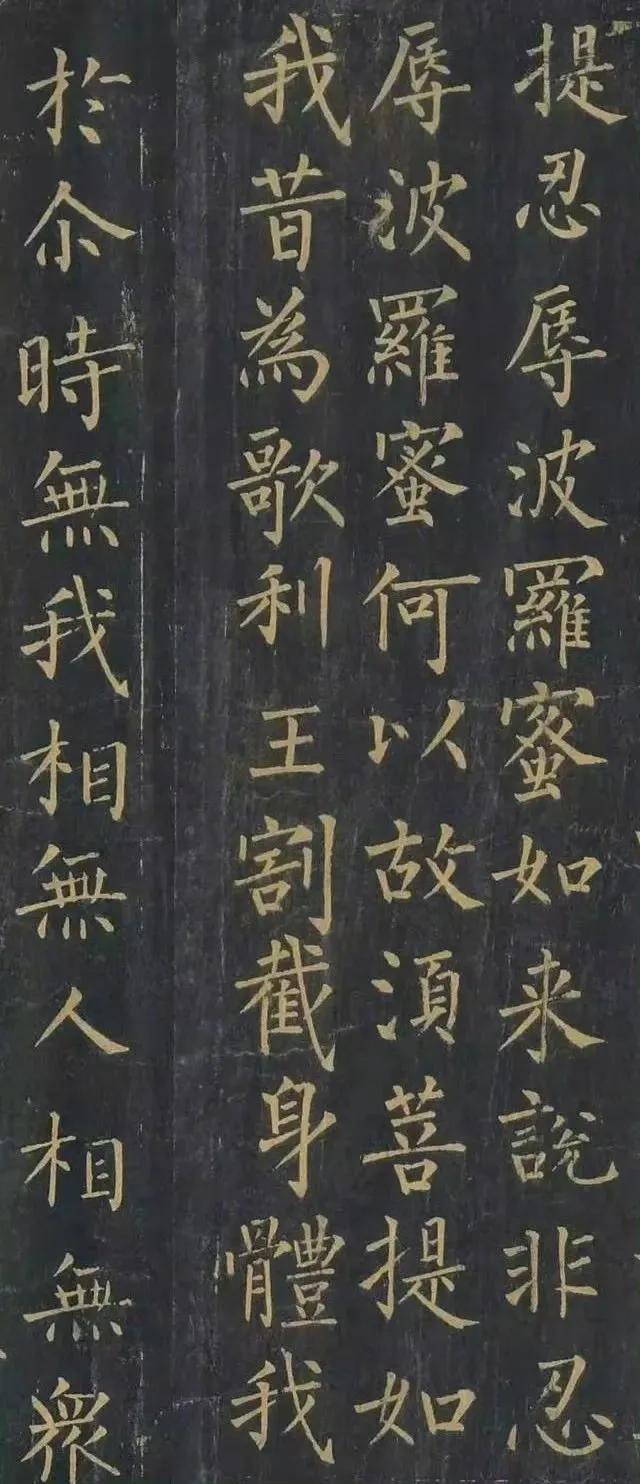 提忍辱波羅蜜如来說非忍
辱波羅蜜何以故湏菩提如
我昔為歌利王割截身體我
於尒時無我相無人相無衆